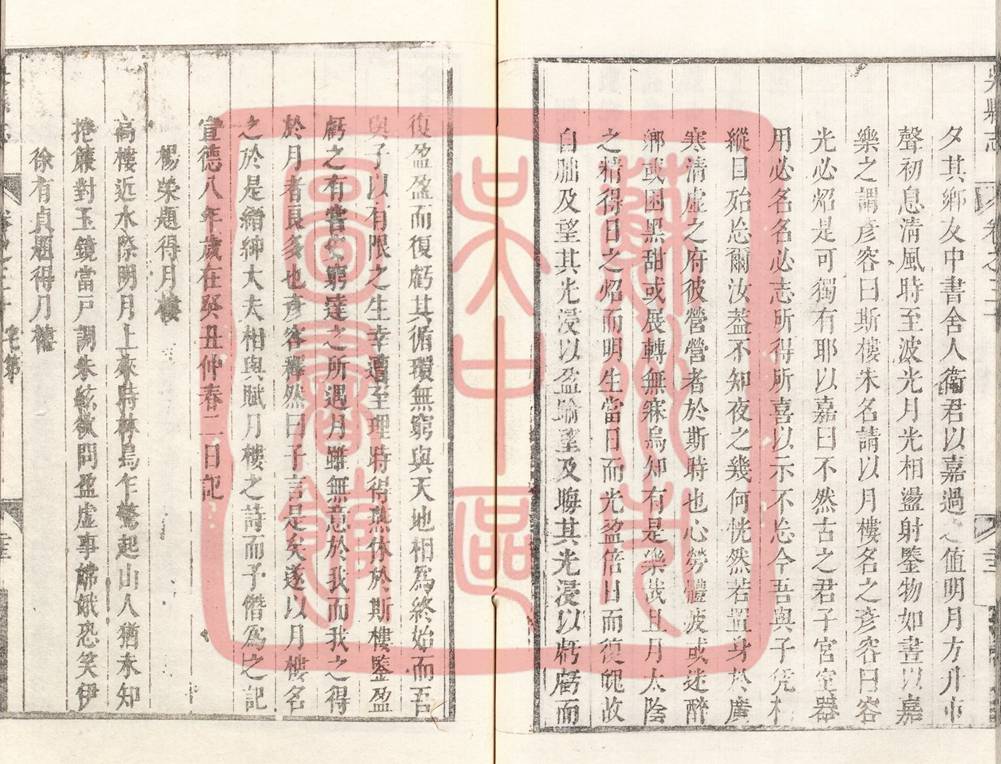 吳縣志 卷之三十
夕其鄉友中書舍人衞君以嘉過之值明月方升市
聲初息清風時至波光月光相盪射鑒物如晝以嘉
樂之謂彥容曰斯樓未名請以月樓名之彥容曰容
光必炤是可獨有耶以嘉曰不然古之君子宮室器
用必名名必志所得所喜以示不忘今吾與子凭杉
縱目殆忘爾汝葢不知夜之幾何恍然若置身於廣
寒清虛之府彼營營者於斯時也心勞體疲或迷醉
鄉或困黑甜或展轉無寐烏知有是樂哉且月太陰
之精得日之炤而明生當日而光盈倍日而復魄故
自朏及望其光浸以盈踰望及晦其光浸以虧虧而
復盈盈而復虧其循環無窮與天地相為終始而吾
與子以有限之生幸遭至理時得燕休於斯樓鑒盈
虧之有嘗安窮達之所遇月雖無意於我而我之得
於月者良多也彥容釋然曰子言是矣遂以月樓名
之於是縉紳大夫相與賦月樓之詩而予僭為之記
宣德八年歲在癸丑仲春二日記
楊榮題得月樓
高樓近水際明月上來時林烏乍驚起山人猶未知
捲簾對玉鏡當戶調朱絃欲問盈虛事嫦娥恐笑伊
徐有貞題得月樓
宅第
蘇州市
吳中區
圖書館